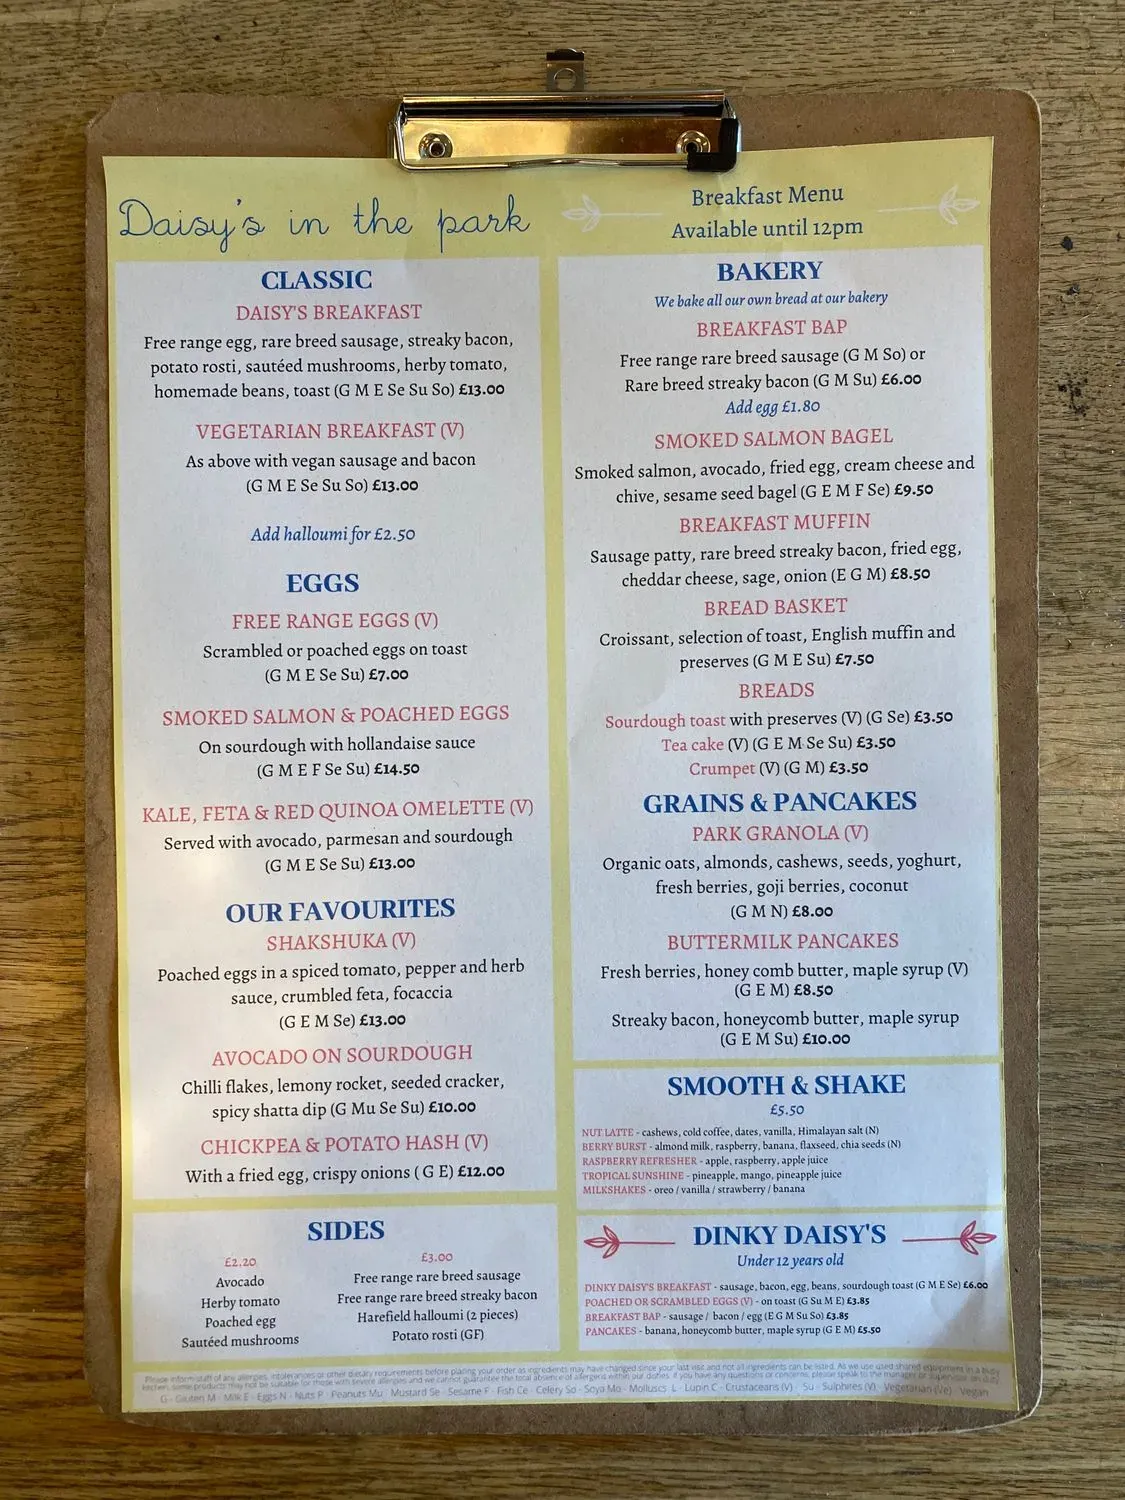 Daisy's in the park
Breakfast Menu
Available until 12pm
CLASSIC
DAISY'S BREAKFAST
Free range egg, rare breed sausage, streaky bacon,
potato rosti, sautéed mushrooms, herby tomato,
homemade beans, toast (G M E Se Su So) £13.00
VEGETARIAN BREAKFAST (V)
As above with vegan sausage and bacon
(G M E Se Su So) £13.00
Add halloumi for £2.50
EGGS
FREE RANGE EGGS (V)
Scrambled or poached eggs on toast
(G M E Se Su) £7.00
SMOKED SALMON & POACHED EGGS
On sourdough with hollandaise sauce
(G M E F Se Su) £14.50
KALE, FETA & RED QUINOA OMELETTE (V)
Served with avocado, parmesan and sourdough
(G M E Se Su) £13.00
OUR FAVOURITES
SHAKSHUKA (V)
Poached eggs in a spiced tomato, pepper and herb
sauce, crumbled feta, focaccia
(G E M Se) £13.00
AVOCADO ON SOURDOUGH
Chilli flakes, lemony rocket, seeded cracker,
spicy shatta dip (G Mu Se Su) £10.00
CHICKPEA & POTATO HASH (V)
With a fried egg, crispy onions ( G E) £12.00
SIDES
£2.20
Avocado
Herby tomato
Poached egg
Sautéed mushrooms
£3.00
Free range rare breed sausage
Free range rare breed streaky bacon
Harefield halloumi (2 pieces)
Potato rosti (GF)
BAKERY
We bake all our own bread at our bakery
BREAKFAST BAP
Free range rare breed sausage (G M So) or
Rare breed streaky bacon (G M Su) £6.00
Add egg £1.80
SMOKED SALMON BAGEL
Smoked salmon, avocado, fried egg, cream cheese and
chive, sesame seed bagel (G E M F Se) £9.50
BREAKFAST MUFFIN
Sausage patty, rare breed streaky bacon, fried egg,
cheddar cheese, sage, onion (E G M) £8.50
BREAD BASKET
Croissant, selection of toast, English muffin and
preserves (G M E Su) £7.50
BREADS
Sourdough toast with preserves (V) (G Se) £3.50
Tea cake (V) (G E M Se Su) £3.50
Crumpet (V) (G M) £3.50
GRAINS & PANCAKES
PARK GRANOLA (V)
Organic oats, almonds, cashews, seeds, yoghurt,
fresh berries, goji berries, coconut
(G M N) £8.00
BUTTERMILK PANCAKES
Fresh berries, honey comb butter, maple syrup (V)
(G E M) £8.50
Streaky bacon, honeycomb butter, maple syrup
(G E M Su) £10.00
SMOOTH & SHAKE
£5.50
NUT LATTE - cashews, cold coffee, dates, vanilla, Himalayan salt (N)
BERRY BURST - almond milk, raspberry, banana, flaxseed, chia seeds (N)
RASPBERRY REFRESHER - apple, raspberry, apple juice
TROPICAL SUNSHINE - pineapple, mango, pineapple juice
MILKSHAKES - oreo / vanilla / strawberry / banana
DINKY DAISY'S
Under 12 years old
DINKY DAISY'S BREAKFAST - sausage, bacon, egg, beans, sourdough toast (G M E Se) £6.00
POACHED OR SCRAMBLED EGGS (V) - on toast (G Su M E) £3.85
BREAKFAST BAP - sausage / bacon / egg (E G M Su So) £3.85
PANCAKES - banana, honeycomb butter, maple syrup (G E M) £5.50
Please inform staff of any allergies, intolerances or other dietary requirements before placing your order as ingredients may have changed since your last visit and not all ingredients can be listed. As we use used shared equipment in a busy
kitchen, some products may not be suitable for those with severe allergies and we cannot guarantee the total absence of allergens within our dishes. If you have any questions or concerns, please speak to the manager or supervisor on duty
G - Gluten M - Milk E - Eggs N - Nuts P - Peanuts Mu - Mustard Se - Sesame F - Fish Ce - Celery So - Soya Mo - Molluscs L - Lupin C - Crustaceans (V) - Su - Sulphites (V) Vegetarian (Ve) - Vegan